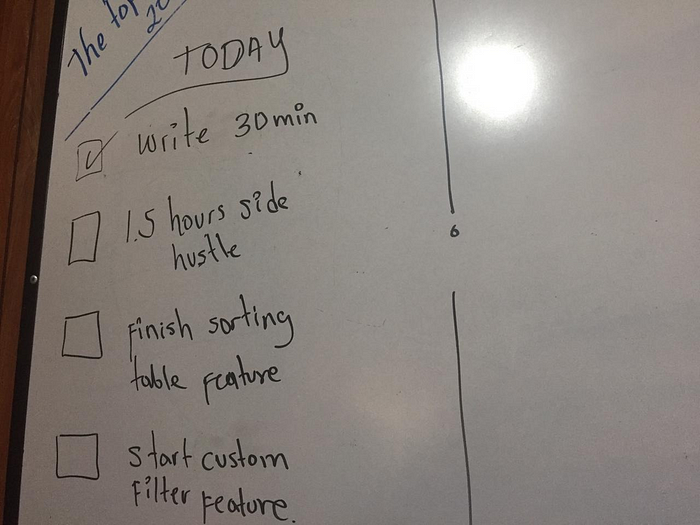 The top
20
TODAY
write 30min
1.5 hours side
hustle
Finish sorting
table feature
Start custom
Filter Feature.
6